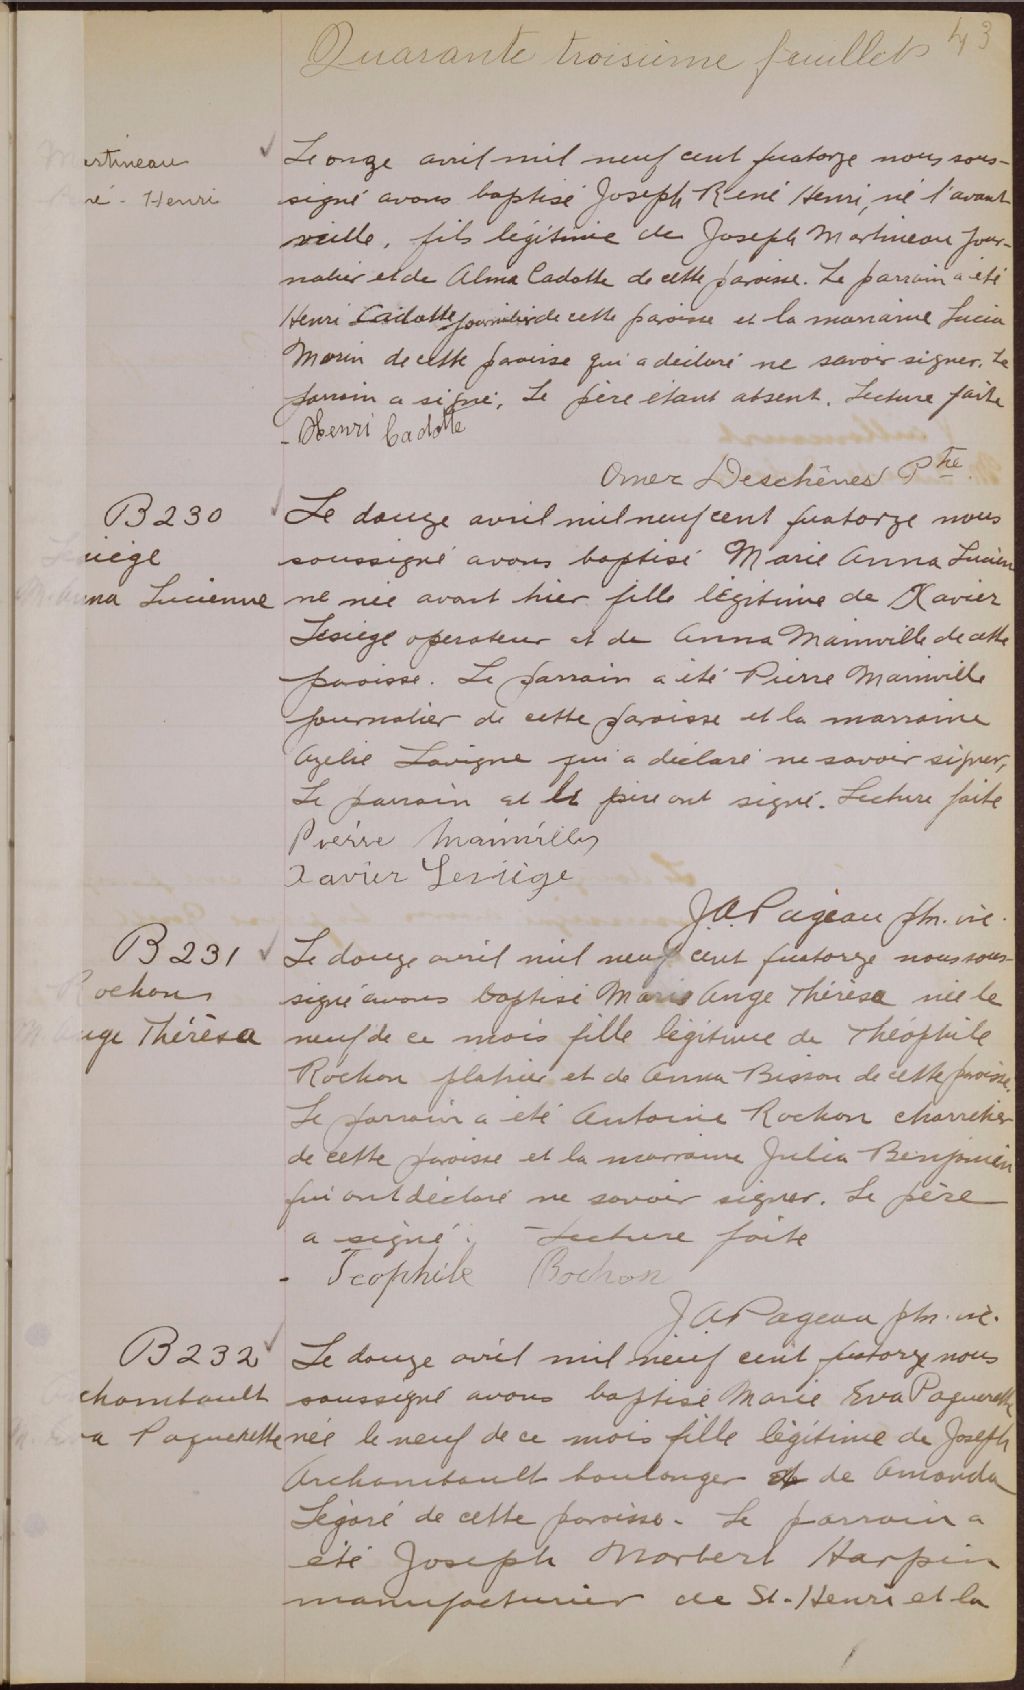 Quarante troisième feuillet 43
Martineau
René - Henri
Le onze avril mil neuf cent quatorze nous sous-
signé avons baptisé Joseph René Henri, né l'avant
veille, fils légitime de Joseph Martineau jour-
nalier et de Alma Cadotte de cette paroisse. Le parrain a été
Henri Cadotte journalier de cette paroisse et la marraine Lucia
Morin de cette paroisse qui a déclaré ne savoir signer. Le
parrain a signé, Le père étant absent. Lecture faite
- Henri Cadotte
Omer Deschênes Ptre
B230
Lesiège
M. Anna Lucienne
Le douze avril mil neuf cent quatorze nous
soussigné avons baptisé Marie Anna Lucien
ne née avant hier fille légitime de Xavier
Lesiège operateur et de Anna Mainville de cette
paroisse. Le parrain a été Pierre Mainville
journalier de cette paroisse et la marraine
Azelie Lavigne qui a déclaré ne savoir signer,
Le parrain et le père ont signé. Lecture faite
Pierre Mainville
Xavier Lesiège
J.A. Pageau ptr. vic.
B231
Rochon
M. Ange Thérèsa
Le douze avril mil neuf cent quatorze nous sous-
signé avons baptisé Marie Ange Thérèsa née le
neuf de ce mois fille légitime de Théophile
Rochon platrier et de Anna Bisson de cette paroisse.
Le parrain a été Antoine Rochon charretier
de cette paroisse et la marraine Julia Benjamin
qui ont déclaré ne savoir signer. Le père
a signé. Lecture faite
- Teophile Rochon
J.A. Pageau ptr. vic.
B232
Archambault
M. Eva Paquerette
Le douze avril mil neuf cent quatorze nous
soussigné avons baptisé Marie Eva Paquerette
née le neuf de ce mois fille légitime de Joseph
Archambault boulanger et de Amanda
Légaré de cette paroisse. Le parrain a
été Joseph Norbert Harpin
manufacturier de St-Henri et la